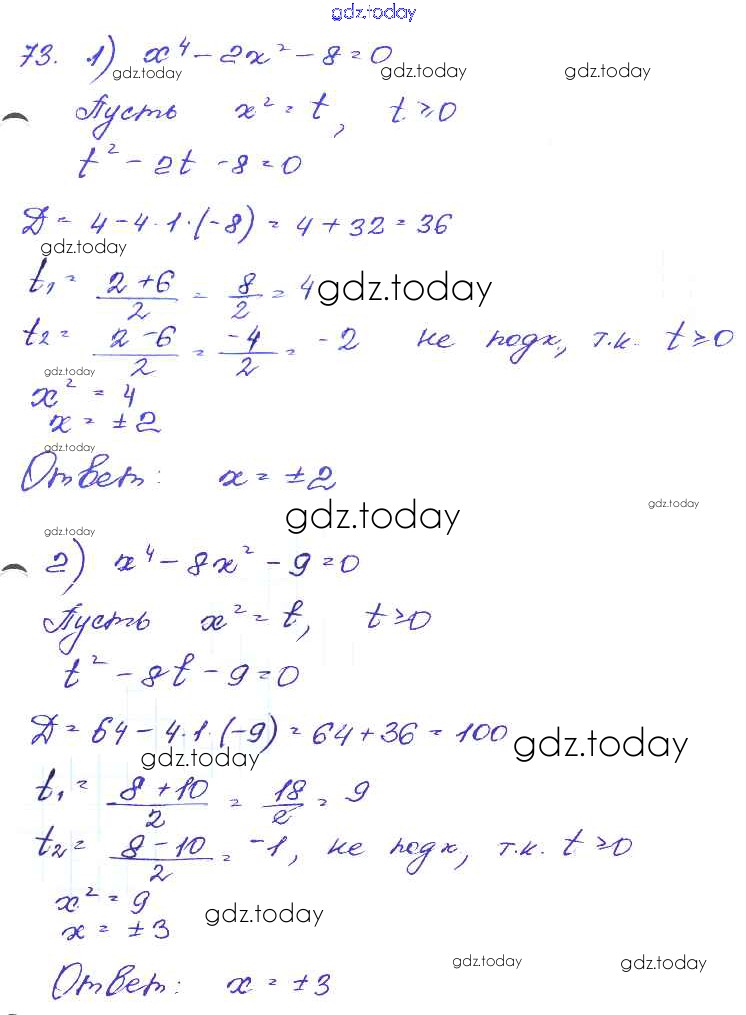 gdz.today
73. 1) x⁴ - 2x² - 8 = 0
gdz.today gdz.today gdz.today
Пусть x² = t, t ≥ 0
t² - 2t - 8 = 0
Д = 4 - 4·1·(-8) = 4 + 32 = 36
gdz.today
t₁ = (2+6)/2 = 8/2 = 4
gdz.today
t₂ = (2-6)/2 = -4/2 = -2 не подх, т.к. t ≥ 0
gdz.today
x² = 4
x = ±2
gdz.today
Ответ: x = ±2
gdz.today gdz.today
gdz.today
2) x⁴ - 8x² - 9 = 0
Пусть x² = t, t ≥ 0
t² - 8t - 9 = 0
Д = 64 - 4·1·(-9) = 64 + 36 = 100
gdz.today gdz.today
t₁ = (8+10)/2 = 18/2 = 9
t₂ = (8-10)/2 = -1, не подх, т.к. t ≥ 0
x² = 9
gdz.today
x = ±3
gdz.today gdz.today
Ответ: x = ±3